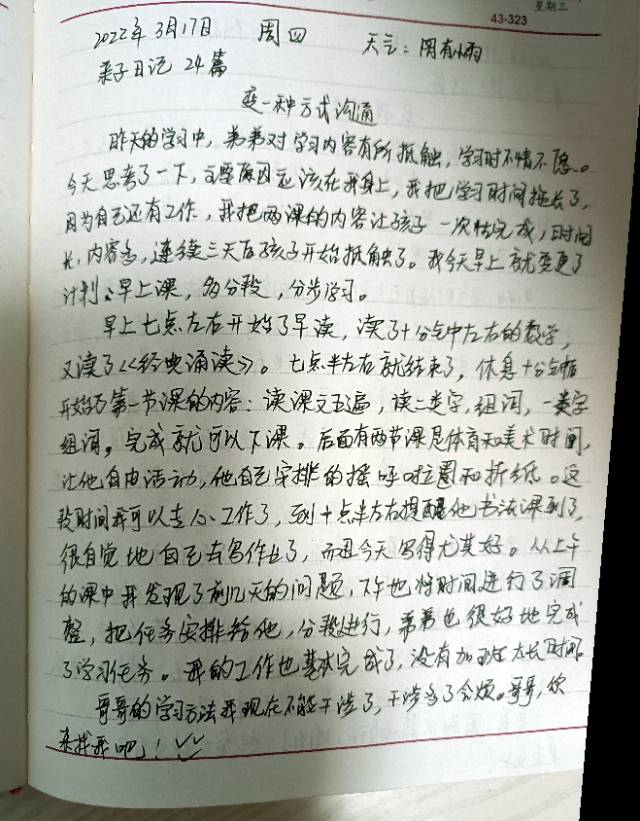 星期三
43-323
2022年3月17日 周四 天气：阴有小雨
亲子日记 24篇
变一种方式沟通
昨天的学习中，弟弟对学习内容有所抵触，学习时不情不愿。
今天思考了一下，主要原因应该在我身上，我把学习时间拖长了，
因为自己还有工作，我把两课的内容让孩子一次性完成，时间
长，内容多，连续三天后孩子开始抵触了。我今天早上就变更了
计划、早上课，多分段，分步学习。
早上七点左右开始了早读，读了十分钟中左右的数学，
又读了《经典诵读》。七点半左右就结束了，休息十分钟
开始了第一节课的内容：读课文五遍，读二类字，组词，一类字
组词，完成就可以下课。后面有两节课是体育和美术时间，
让他自由活动，他自己安排的摇呼啦圈和折纸。这
段时间我可以去忙工作了，到十点半左右提醒他书法课到了，
很自觉地自己去写作业了，而且今天写得尤其好。从上午
的课中我发现了前几天的问题，下午也将时间进行了调
整，把任务安排给他，分段进行，弟弟也很好地完成
了学习任务。我的工作也基本完成了，没有加班太长时间。
哥哥的学习方法我现在不能干涉了，干涉多了会烦。哥哥，你
来找我吧！